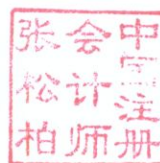 中国注册
会计师
张松柏